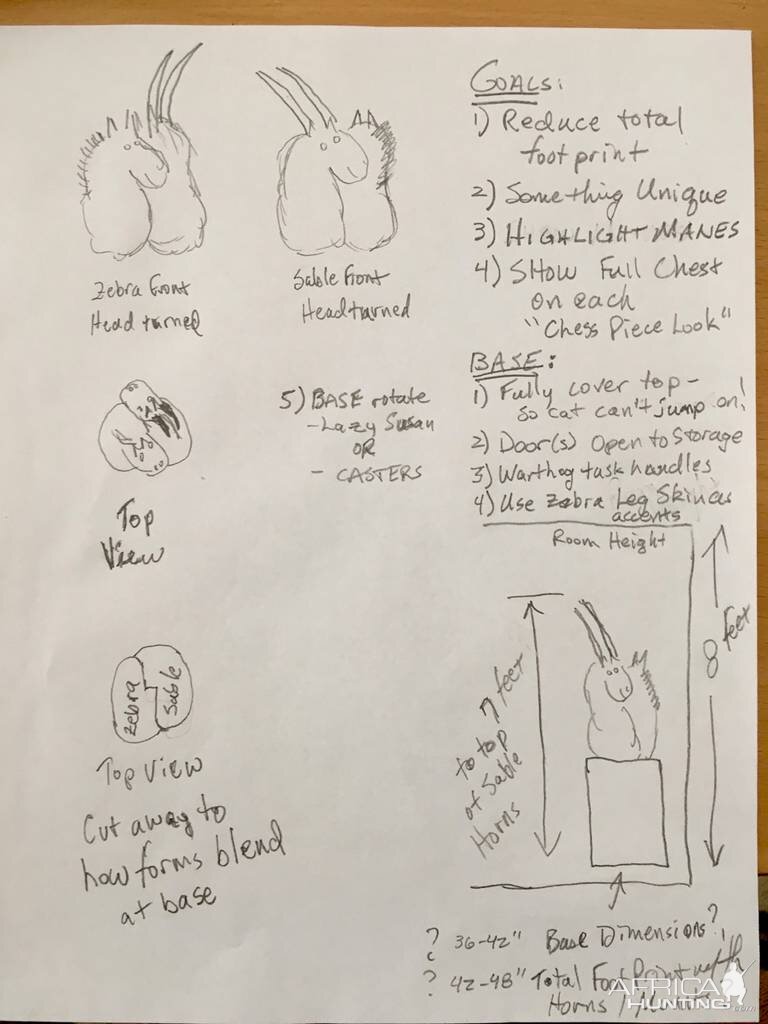 Zebra front
Head turned
Sable front
Head turned
GOALS:
1) Reduce total
foot print
2) Something Unique
3) HIGHLIGHT MANES
4) SHow Full Chest
on each
"Chess Piece Look"
BASE:
1) Fully cover top -
so cat can't jump on!
2) Door(s) Open to Storage
3) Warthog task handles
4) Use Zebra Leg Skin as
accents
5) BASE rotate
- Lazy Susan
OR
- CASTERS
Top
View
zebra
Sable
Top View
Cut away to
how forms blend
at base
Room Height
8 feet
7 feet
to top
of Sable
Horns
? 36-42" Base Dimensions?
? 42-48" Total Foot Print with
Horns
AFRICA
HUNTING
.com